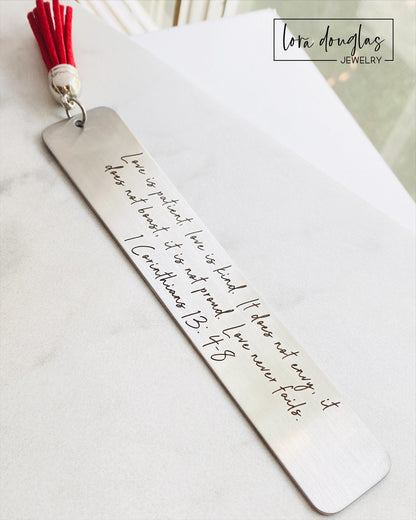 lora douglas
JEWELRY
Love is patient, love is kind. It does not envy, it
does not boast, it is not proud. Love never fails.
1 Corinthians 13: 4-8